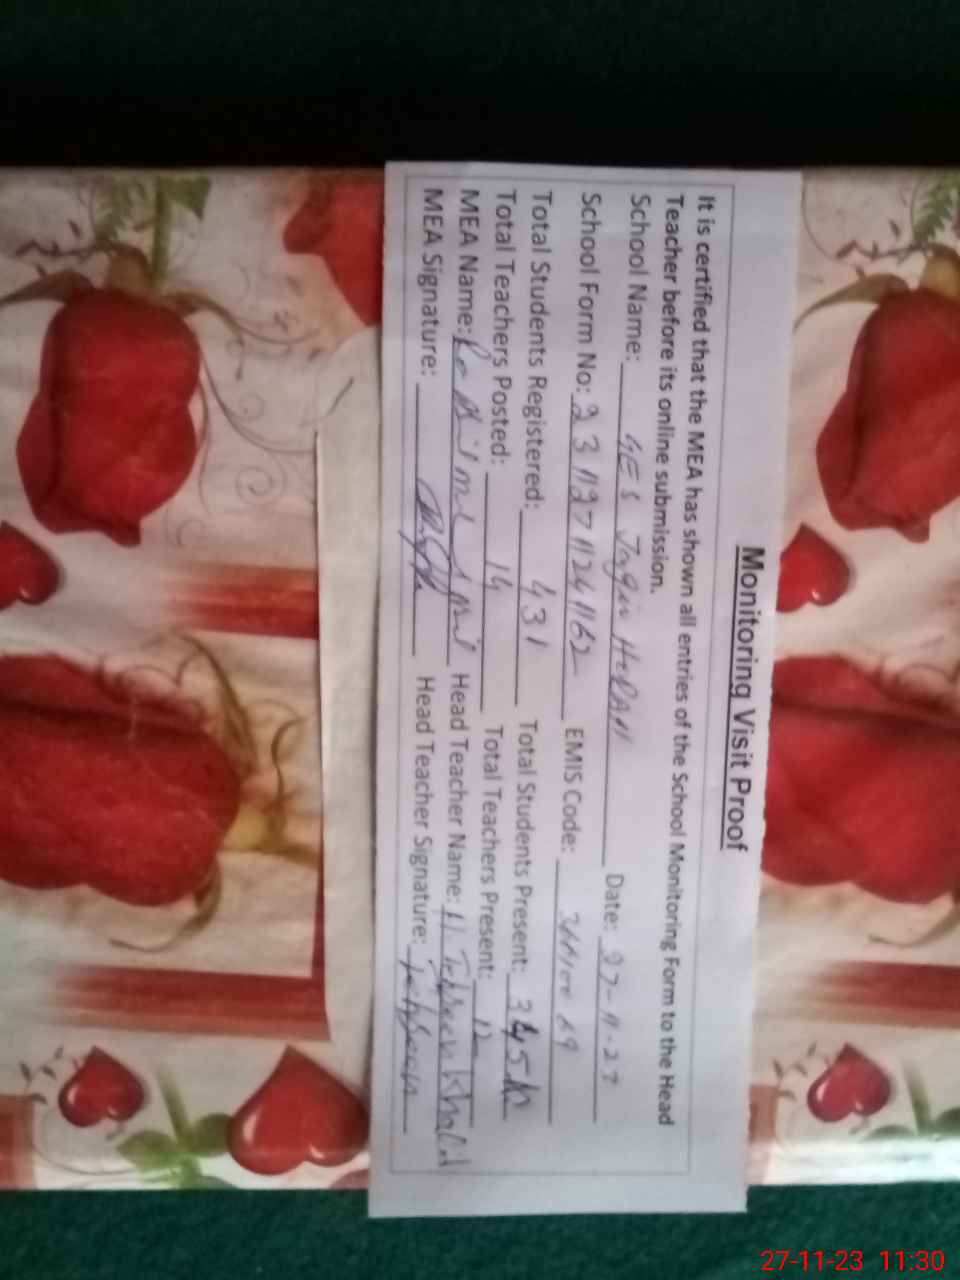 Monitoring Visit Proof
It is certified that the MEA has shown all entries of the School Monitoring Form to the Head
Teacher before its online submission.
School Name: GES Jagir Date: 27-11-23
School Form No: EMIS Code:
Total Students Registered: 431 Total Students Present: 345
Total Teachers Posted: 14 Total Teachers Present: 12
MEA Name: Head Teacher Name: Khalid
MEA Signature: Head Teacher Signature:
27-11-23 11:30